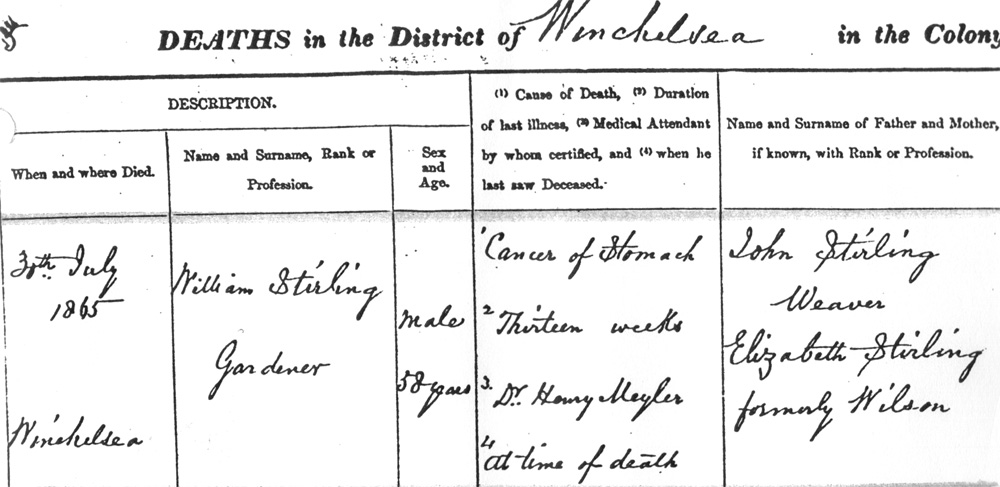 DEATHS in the District of Winchelsea in the Colony
DESCRIPTION.
When and where Died.
Name and Surname, Rank or
Profession.
Sex
and
Age.
(1) Cause of Death, (2) Duration
of last illness, (3) Medical Attendant
by whom certified, and (4) when he
last saw Deceased.
Name and Surname of Father and Mother,
if known, with Rank or Profession.
30th July
1865
Winchelsea
William Stirling
Gardener
Male
58 years
1 Cancer of Stomach
2 Thirteen weeks
3. Dr. Henry Meyler
4 At time of death
John Stirling
Weaver
Elizabeth Stirling
formerly Wilson